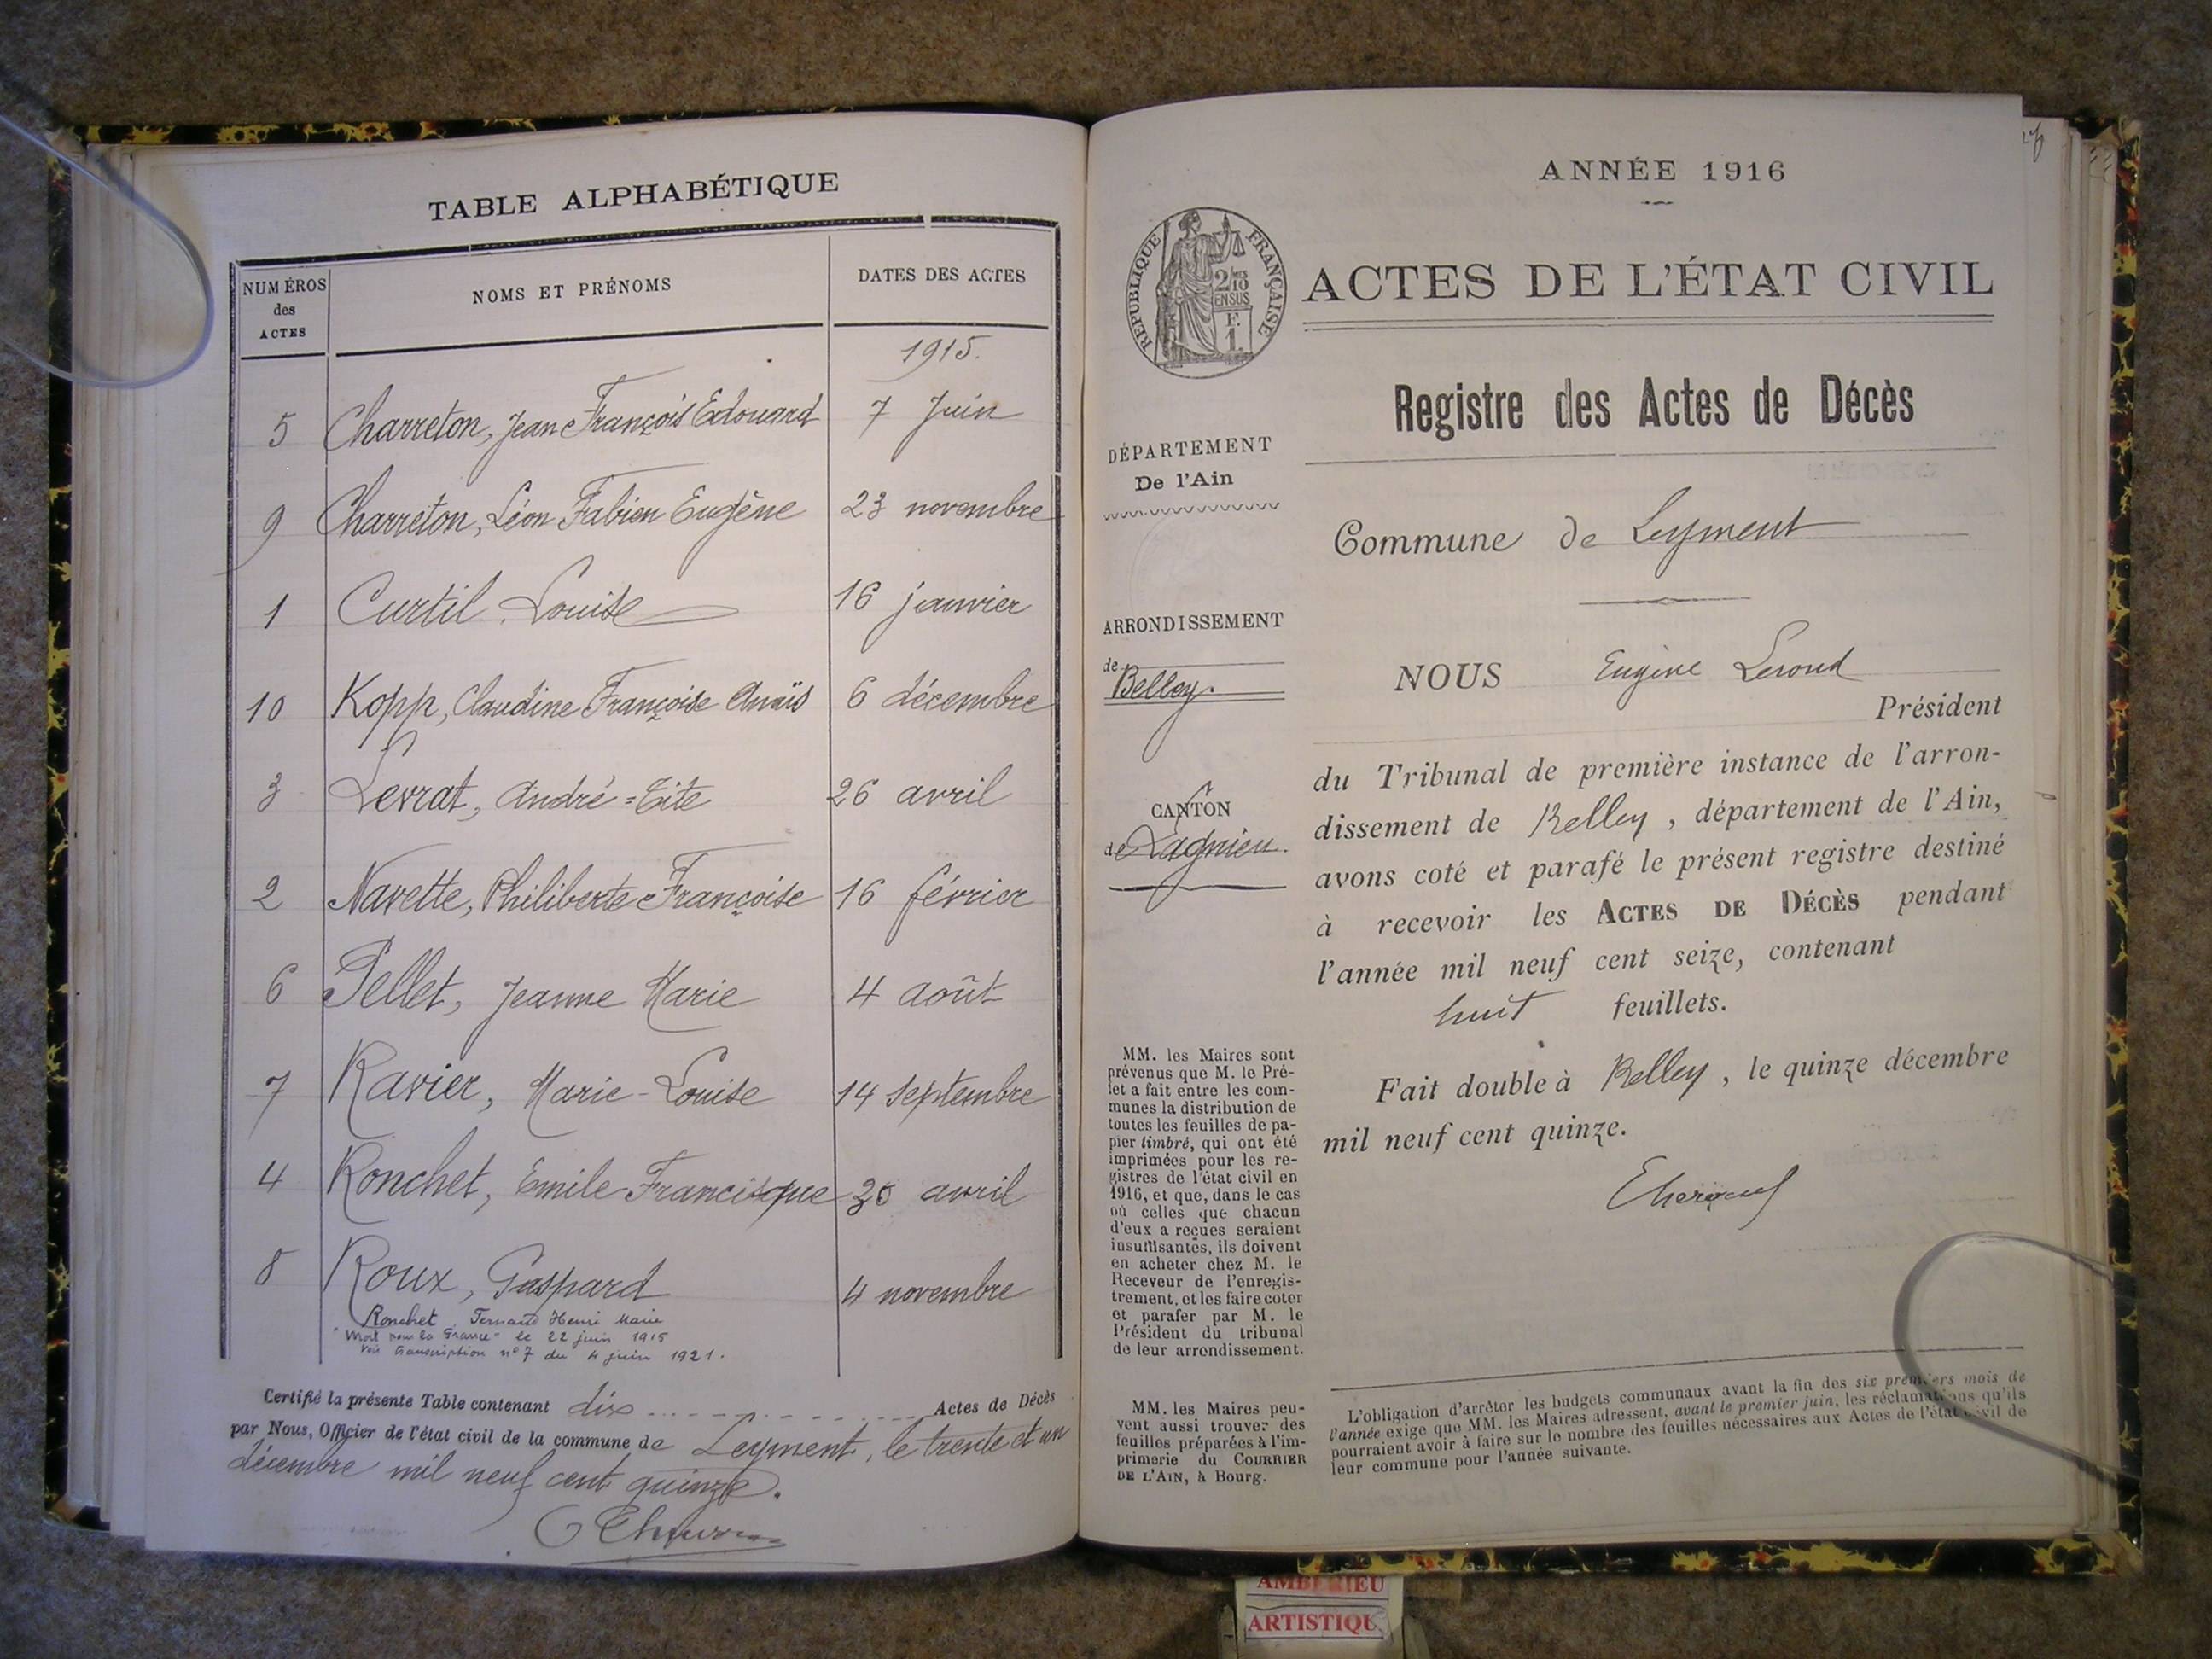 TABLE ALPHABÉTIQUE
NUMÉROS
des
ACTES
NOMS ET PRÉNOMS
DATES DES ACTES
1915.
5 Charreton, Jean François Edouard 7 Juin
9 Charreton, Léon Fabien Eugène 23 novembre
1 Curtil Louise 16 janvier
10 Kopp, Claudine Françoise Anaïs 6 décembre
3 Levrat, André=Tite 26 avril
2 Navette, Philiberte Françoise 16 février
6 Pellet, Jeanne Marie 4 août
7 Ravier, Marie-Louise 14 septembre
4 Ronchet, Emile Francisque 30 avril
8 Roux, Gaspard 4 novembre
Ronchet Fernand Henri Marie
"Mort pour la France" le 22 juin 1915
Voir transcription nº 7 du 4 juin 1921.
Certifié la présente Table contenant dix Actes de Décès
par Nous, Officier de l'état civil de la commune de Leyment, le trente et un
décembre mil neuf cent quinze.
ANNÉE 1916
RÉPUBLIQUE FRANÇAISE
2/10
EN SUS
F.
1.
ACTES DE L'ÉTAT CIVIL
Registre des Actes de Décès
DÉPARTEMENT
De l'Ain
Commune de Leyment
ARRONDISSEMENT
de Belley.
CANTON
de Lagnieu.
NOUS Eugène Leroud
Président
du Tribunal de première instance de l'arron-
dissement de Belley, département de l'Ain,
avons coté et parafé le présent registre destiné
à recevoir les ACTES DE DÉCÈS pendant
l'année mil neuf cent seize, contenant
huit feuillets.
Fait double à Belley, le quinze décembre
mil neuf cent quinze.
MM. les Maires sont
prévenus que M. le Pré-
fet a fait entre les com-
munes la distribution de
toutes les feuilles de pa-
pier timbré, qui ont été
imprimées pour les re-
gistres de l'état civil en
1916, et que, dans le cas
où celles que chacun
d'eux a reçues seraient
insuffisantes, ils doivent
en acheter chez M. le
Receveur de l'enregis-
trement, et les faire coter
et parafer par M. le
Président du tribunal
de leur arrondissement.
MM. les Maires peu-
vent aussi trouver des
feuilles préparées à l'im-
primerie du COURRIER
DE L'AIN, à Bourg.
L'obligation d'arrêter les budgets communaux avant la fin des six premiers mois de
l'année exige que MM. les Maires adressent, avant le premier juin, les réclamations qu'ils
pourraient avoir à faire sur le nombre des feuilles nécessaires aux Actes de l'état civil de
leur commune pour l'année suivante.
AMBERIEU
ARTISTIQU